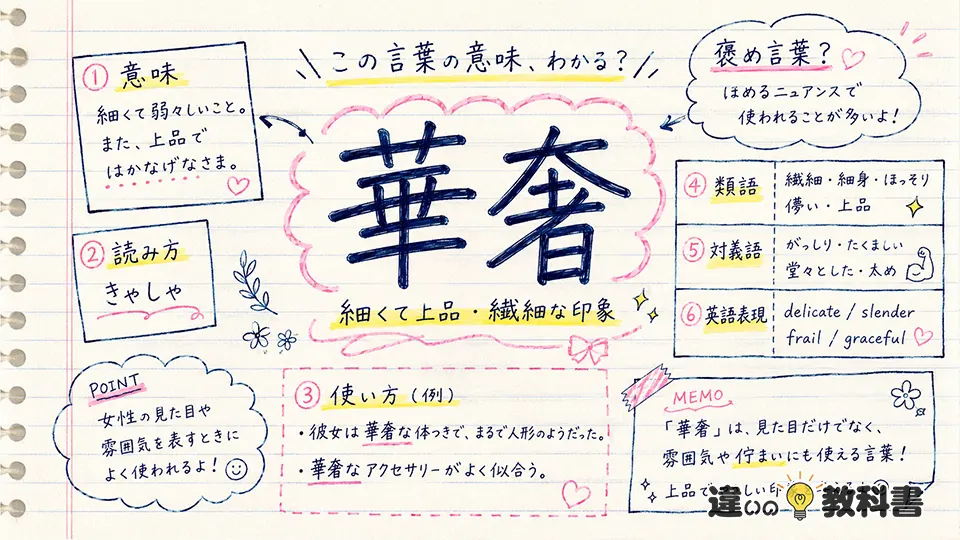 この言葉の意味、わかる?
① 意味
細くて弱々しいこと。
また、上品で
はかなげなさま。
② 読み方
きゃしゃ
華奢
細くて上品・繊細な印象
褒め言葉?
ほめるニュアンスで
使われることが多いよ!
④ 類語
繊細・細身・ほっそり
儚い・上品
⑤ 対義語
がっしり・たくましい
堂々とした・太め
⑥ 英語表現
delicate / slender
frail / graceful
POINT
女性の見た目や
雰囲気を表すときに
よく使われるよ!
③ 使い方(例)
・彼女は華奢な体つきで、まるで人形のようだった。
・華奢なアクセサリーがよく似合う。
MEMO
「華奢」は、見た目だけでなく、
雰囲気や佇まいにも使える言葉!
上品で
違いの教科書